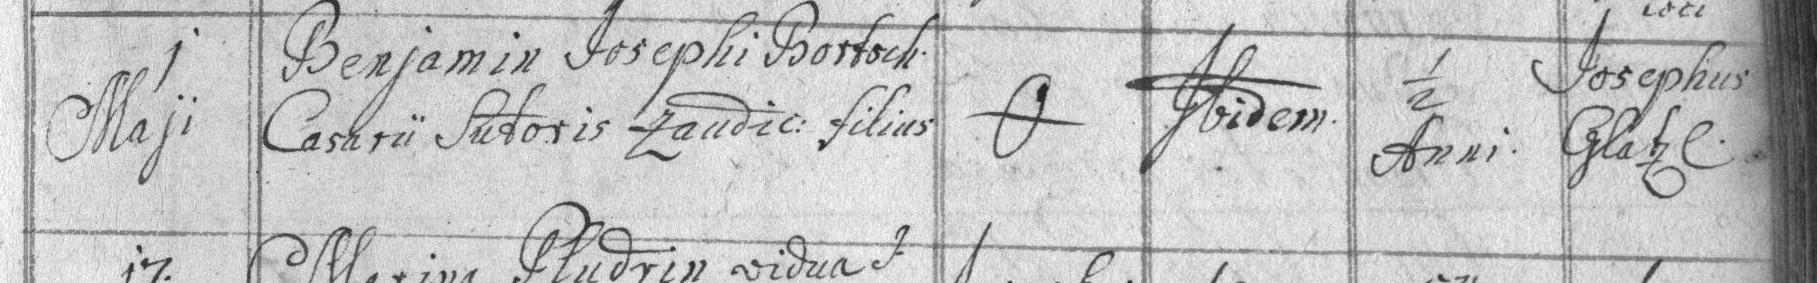 loci
1 Benjamin Josephi Bortsch.
Maji Casarii Sutoris Zaudic: filius Ibidem. ½ Anni. Josephus Glatzl.
17. Marina Pludrin vidua